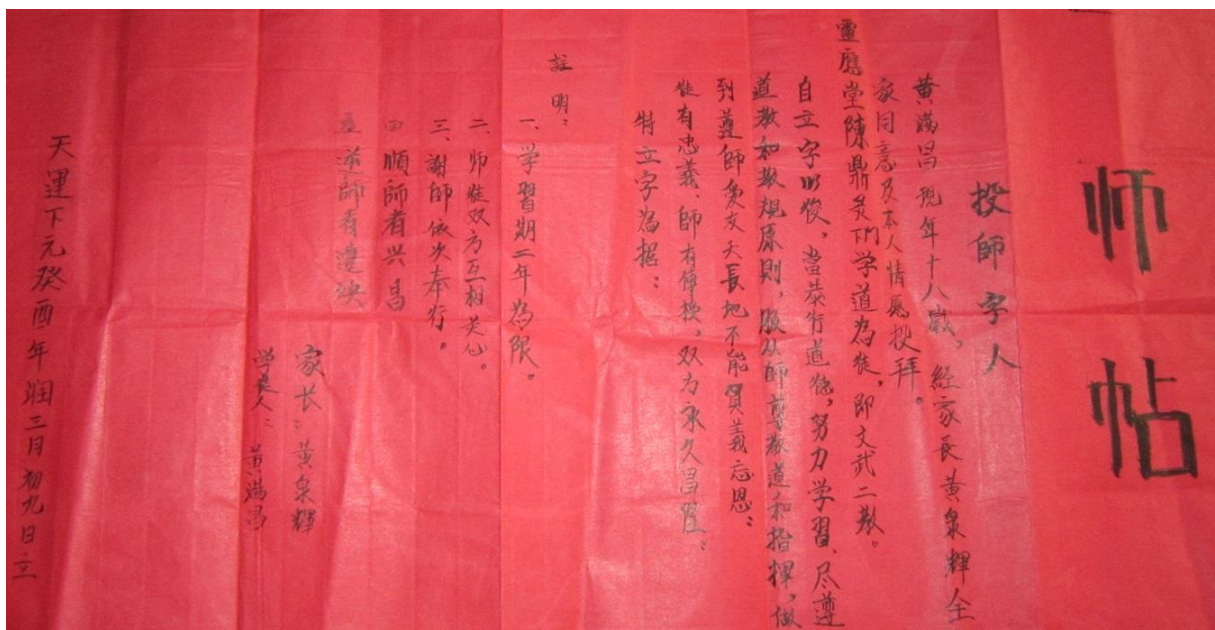 师帖
投師字人
黄滿昌現年十八歲，經家長黄泉輝全
家同意及本人情愿投拜。
靈應堂陳鼎炅門下学道為徒，即文武二教。
自立字以後，當恭行道德，努力学習、尽遵
道教和教規原則，服从師尊教道和指揮，做
到尊師爱友天長地不能負義忘恩；
徒有忠義、師有傳授，双方永久昌盛；
特立字為据：
註明：
一、学習期二年為限。
二、师徒双方互相关心。
三、謝師依次奉行。
四 順師者兴昌
五 逆師者遭殃
家长：黄泉輝
学道人：黄滿昌
天運下元癸酉年润三月初九日立